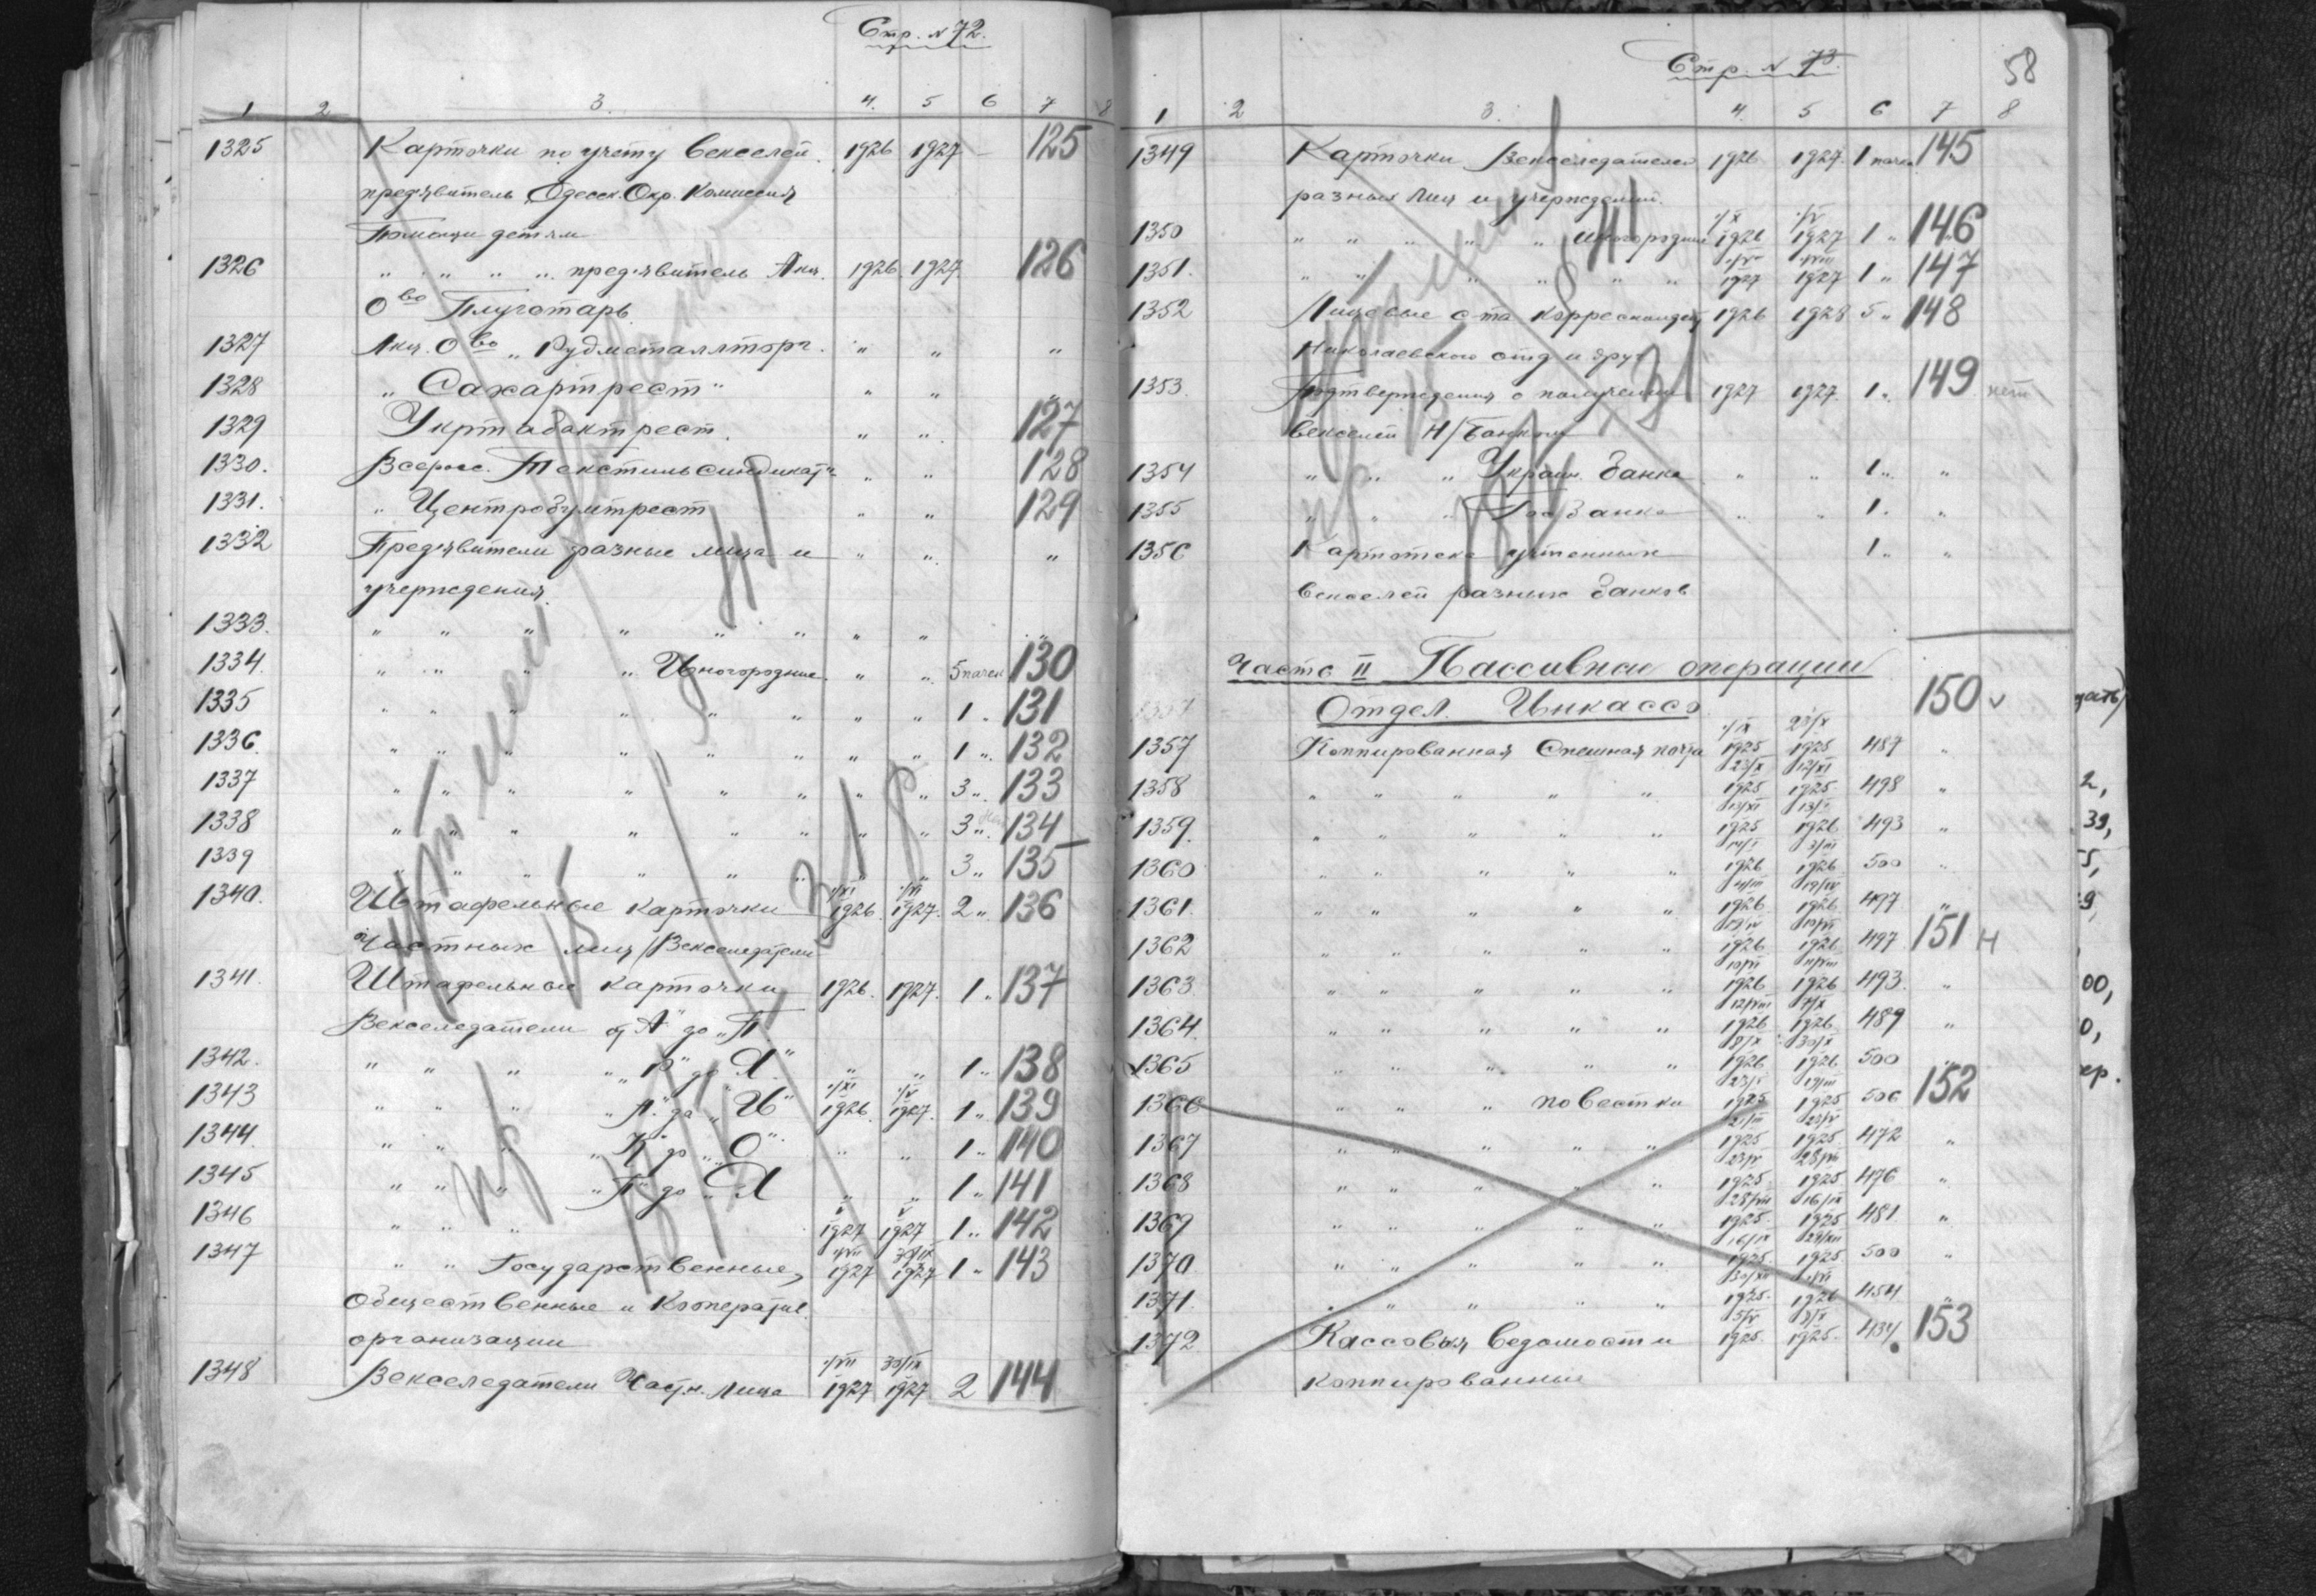 Стр. № 72.
1 2 3. 4. 5 6 7 8
1325 Карточки по учету векселей 1926 1927 – 125
предявитель Одесск. Окр. Комиссия
Помощи детям
1326 " " " " предявитель Акц. 1926 1927 126
О во Плуготарь
1327 Акц. О во „Рудметаллторг. " " "
1328 „Сахартрест" " " "
1329 Укртабактрест. " " 127
1330. Всерос. Текстильсиндикат" " " 128
1331. " Центробумтрест " " 129
1332 Предявители разные лица и " " "
учерждения.
1333. " " " " " " " " "
1334. " " " " Иногородние " " 5 пачек 130
1335 " " " " " " " " 1 " 131
1336. " " " " " " " " 1 " 132
1337 " " " " " " " " 3 " 133
1338 " " " " " " " " 3 " 134
1339 " " " " " " " " 3 " 135
1340. Штафельные карточки 1/XI 1926. 1/VI 1927. 2 " 136
Частных лиц /Векселедатели
1341. Штафельные карточки 1926. 1927. 1 " 137
Векселедатели от „А" до „П"
1342. " " " „Р" до „Я" " " 1 " 138
1343 " " " „А" до „И" 1/XI 1926. 1/V 1927. 1 " 139
1344. " " " „К" до „О" " " 1 " 140
1345 " " " „П" до „Я " " 1 " 141
1346 " " " V 1927 V 1927 1 " 142
1347 " " Государственные, 1/VII 1927 30/IX 1927 1 " 143
Общественные и Кооператив.
организации
1348 Векселедатели Частн. лица 1/VII 1927 30/IX 1927 2 144
Стр. № 73.
58
1 2 3. 4. 5 6 7 8
1349 Карточки Векселедателей 1926 1927. 1 пачка 145
разных лиц и учерждений.
1350 " " " " " иногородние 1/X 1926 1/V 1927 1 " 146
1351. " " " " " " 1927 1927 1 " 147
1352 Лицевые с-та корреспонденц 1926 1928 5 " 148
Николаевского отд и друг
1353. Подтверждения о получении 1927 1927. 1 " 149 нет
векселей Н/Банком
1354 " " " Украин. Банка " " 1 " "
1355 " " " Гос Банка " " 1 " "
1356 Картотека учтенных 1 " "
векселей разных банков
Часть II Пассивные операции
Отдел. Инкассо 150 v
1357 Коппированная Спешная почта 1/IX 1925 23/X 1925 487 "
1358 " " " " " 23/X 1925 12/XI 1925 498 "
1359. " " " " " 13/XI 1925 13/I 1926 493 "
1360 " " " " " 14/I 1926 3/III 1926 500 "
1361. " " " " " 4/III 1926 19/IV 1926 497 "
1362 " " " " " 19/IV 1926 10/VI 1926 497 151 Н
1363 " " " " " 10/VI 1926 11/VIII 1926 493. "
1364. " " " " " 12/VIII 1926 7/X 1926 489 "
1365 " " " " " 8/X 1926 30/X 1926 500 "
1366 " " " повестки 23/I 1925 19/III 1925 506 152
1367 " " " " " 21/III 1925 23/V 1925. 472 "
1368 " " " " " 23/V 1925 28/VII 1925 476 "
1369 " " " " " 28/VII 1925. 16/IX 1925 481 "
1370. " " " " " 16/IX 1925 29/XII 1925 500 "
1371. " " " " " 30/XII 1925. 1926 454 "
1372 Кассовыя ведомости 5/V 1925. 3/X 1925. 434 153
Коппированные